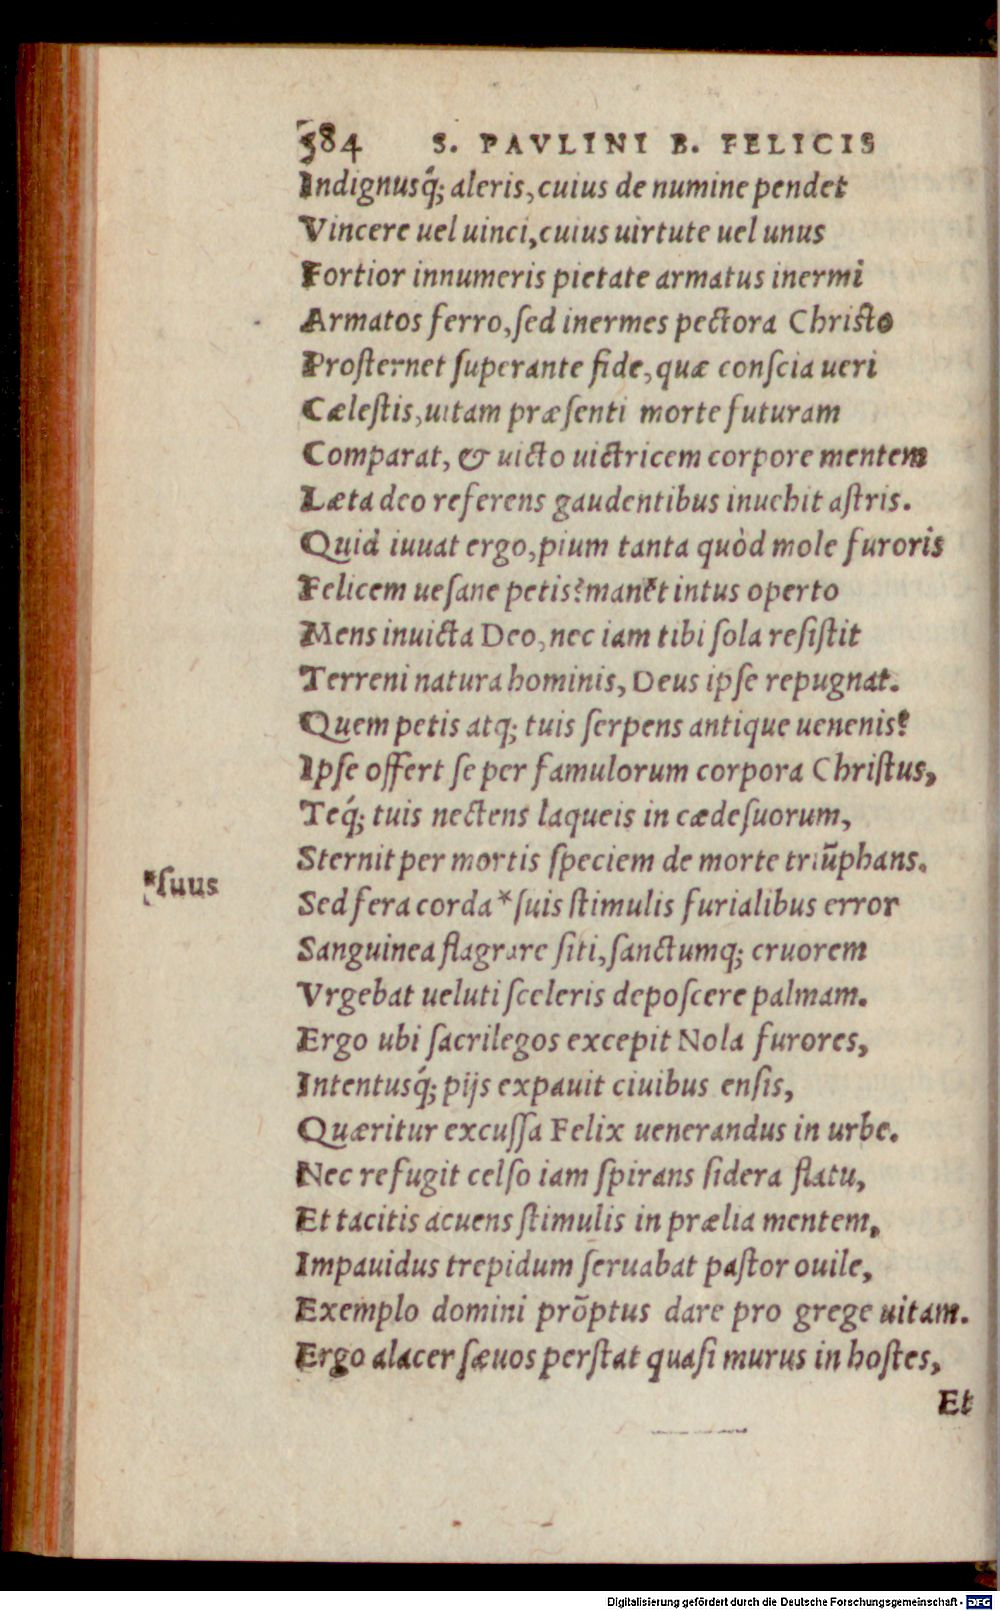 384 S. PAVLINI B. FELICIS
Indignusq́; aleris, cuius de numine pendet
Vincere uel uinci, cuius uirtute uel unus
Fortior innumeris pietate armatus inermi
Armatos ferro, ſed inermes pectora Christo
Proſternet ſuperante fide, quæ conſcia ueri
Cæleſtis, uitam præſenti morte futuram
Comparat, & uicto uictricem corpore mentem
Læta deo referens gaudentibus inuehit aſtris.
Quid iuuat ergo, pium tanta quòd mole furoris
Felicem ueſane petis? manet intus operto
Mens inuicta Deo, nec iam tibi ſola reſiſtit
Terreni natura hominis, Deus ipſe repugnat.
Quem petis atq; tuis ſerpens antique uenenis?
Ipſe offert ſe per famulorum corpora Chriſtus,
Teq́; tuis nectens laqueis in cæde ſuorum,
Sternit per mortis ſpeciem de morte triũphans.
*ſuus
Sed fera corda * ſuis ſtimulis furialibus error
Sanguinea flagrare ſiti, ſanctumq; cruorem
Vrgebat ueluti ſceleris depoſcere palmam.
Ergo ubi ſacrilegos excepit Nola furores,
Intentusq́; pijs expauit ciuibus enſis,
Quæritur excuſſa Felix uenerandus in urbe.
Nec refugit celſo iam ſpirans ſidera flatu,
Et tacitis acuens ſtimulis in prælia mentem,
Impauidus trepidum ſeruabat paſtor ouile,
Exemplo domini prõptus dare pro grege uitam.
Ergo alacer ſæuos perſtat quaſi murus in hoſtes,
Et
Digitalisierung gefördert durch die Deutsche Forschungsgemeinschaft - DFG